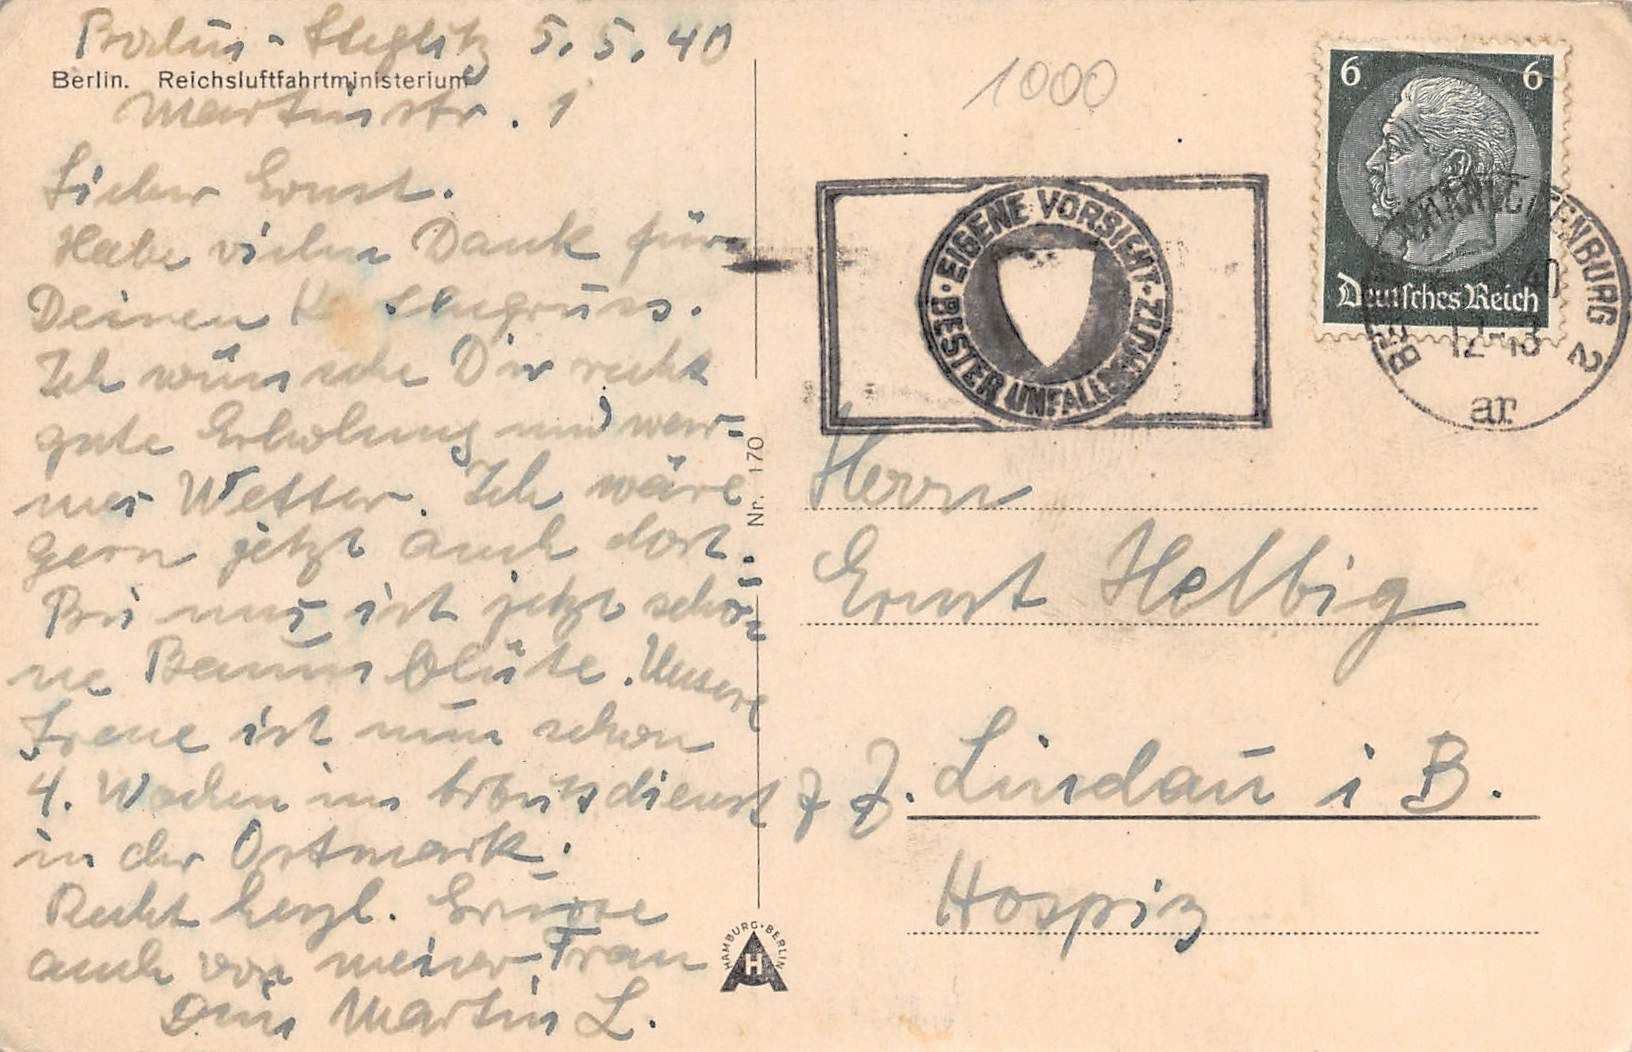 Berlin-Steglitz 5.5.40
Berlin. Reichsluftfahrtministerium
Martinstr. 1
Lieber Ernst.
Habe vielen Dank für
Deinen Kartengruss.
Ich wünsche Dir recht
gute Erholung und war-
mes Wetter. Ich wäre
gern jetzt auch dort.
Bei uns ist jetzt schö-
ne Baumblüte. Unsere
Irene ist nun schon
4. Wochen im Arbeitsdienst
in der Ostmark.
Recht herzl. Grüsse
auch von meiner Frau
Dein Martin L.
Nr. 170
HAMBURG-BERLIN
H
1000
6 6
Deutsches Reich
EIGENE VORSICHT · BESTER UNFALLSCHUTZ ·
BERLIN-CHARLOTTENBURG 2
40
12-13
ar
Herrn
Ernst Helbig
z Z. Lindau i B.
Hospiz